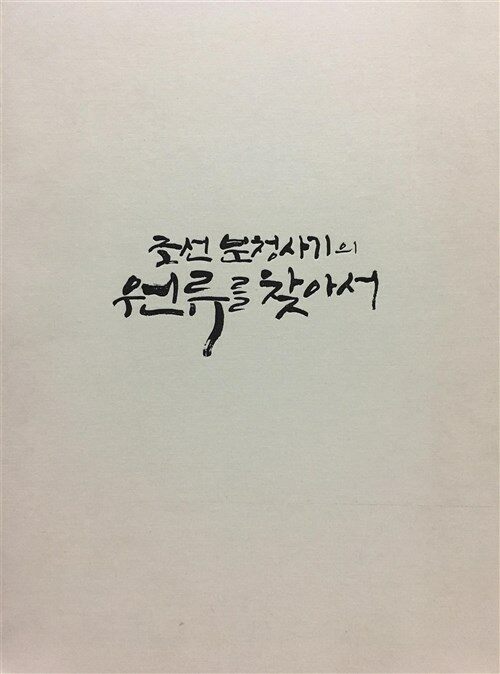 조선 분청사기의
원류를 찾아서